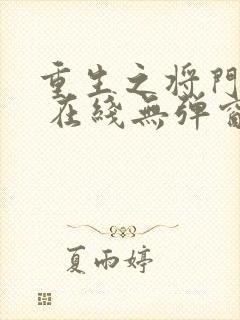 重生之将門
在綫無弹窗
夏雨婷